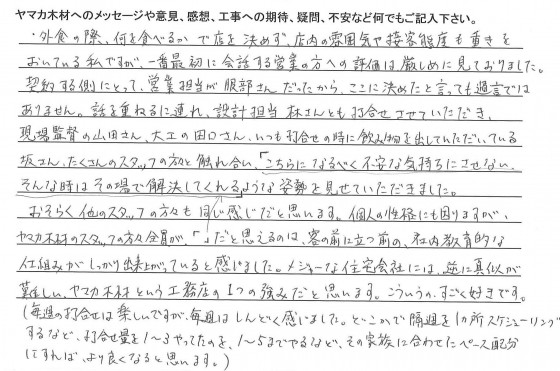 ヤマカ木材へのメッセージや意見、感想、工事への期待、疑問、不安など何でもご記入下さい。
・外食の際、何を食べるかで店を決めず、店内の雰囲気や接客態度も重きを
おいている私ですが、一番最初に会話する営業の方への評価は厳しめに見ておりました。
契約する側にとって、営業担当が服部さんだったから、ここに決めたと言っても過言では
ありません。話を重ねるに連れ、設計担当 林さんとも打合せさせていただき、
現場監督の山田さん、大工の田口さん、いつも打合せの時に飲み物を出していただいている
坂さん、たくさんのスタッフの方々と触れ合い、「こちらになるべく不安な気持ちにさせない、
そんな時はその場で解決してくれる」ような姿勢を見せていただきました。
おそらく他のスタッフの方々も同じ感じだと思います。個人の性格にも因りますが、
ヤマカ木材のスタッフの方々全員が、「 」だと思えるのは、客の前に立つ前の、社内教育的な
仕組みがしっかり出来上がっていると感じました。メジャーな住宅会社には、逆に真似が
難しい、ヤマカ木材という工務店の1つの強みだと思います。こういうの、すごく好きです。
(毎週の打合せは楽しいですが、毎週はしんどく感じました。どこかで隔週を1カ所スケジューリング
するなど、打合せ量を1〜3やってたのを、1〜5までやるなど、その家族に合わせたペース配分
にすれば、より良くなると思います。)